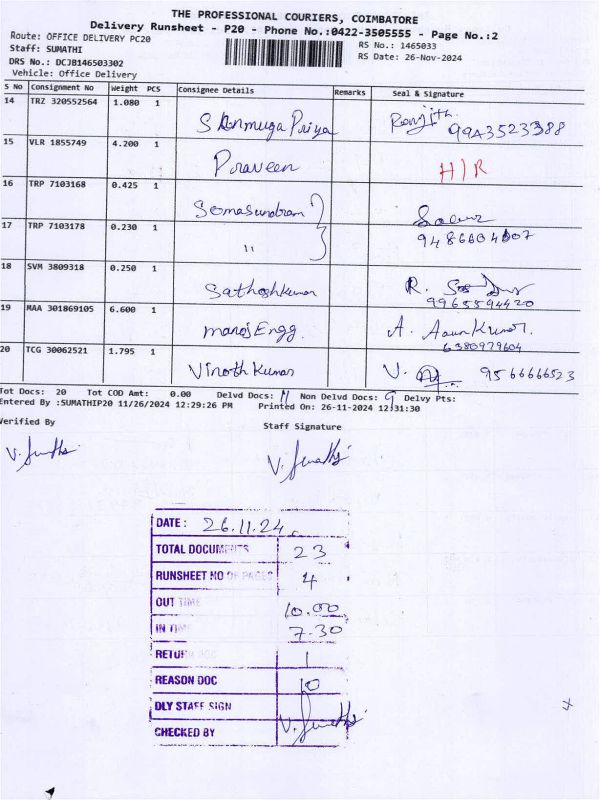 THE PROFESSIONAL COURIERS, COIMBATORE
Delivery Runsheet - P20 - Phone No.:0422-3505555 - Page No.:2
Route: OFFICE DELIVERY PC20
RS No.: 1465033
Staff: SUMATHI
RS Date: 26-Nov-2024
DRS No.: DCJB146503302
Vehicle: Office Delivery
S No Consignment No Weight PCS Consignee Details Remarks Seal & Signature
14 TRZ 320552564 1.080 1 Shanmuga Priya Ranjith. 9943523388
15 VLR 1855749 4.200 1 Praveen H/R
16 TRP 7103168 0.425 1 Somasundram
17 TRP 7103178 0.230 1 " 9486604607
18 SVM 3809318 0.250 1 Sathoshkumar R. 9965594420
19 MAA 301869105 6.600 1 manoj Engg. A. Aaun Kumar. 6380979604
20 TCG 30062521 1.795 1 Vinoth Kumar V. 9566666523
Tot Docs: 20 Tot COD Amt: 0.00 Delvd Docs: 11 Non Delvd Docs: 9 Delvy Pts:
Entered By :SUMATHIP20 11/26/2024 12:29:26 PM Printed On: 26-11-2024 12:31:30
Verified By Staff Signature
V. Sumathi V. Sumathi
DATE : 26.11.24
TOTAL DOCUMENTS 23
RUNSHEET NO OF PAGES 4
OUT TIME 10.00
IN TIME 7.30
RETURN DOC 1
REASON DOC 10
DLY STAFF SIGN V. Sumathi
CHECKED BY